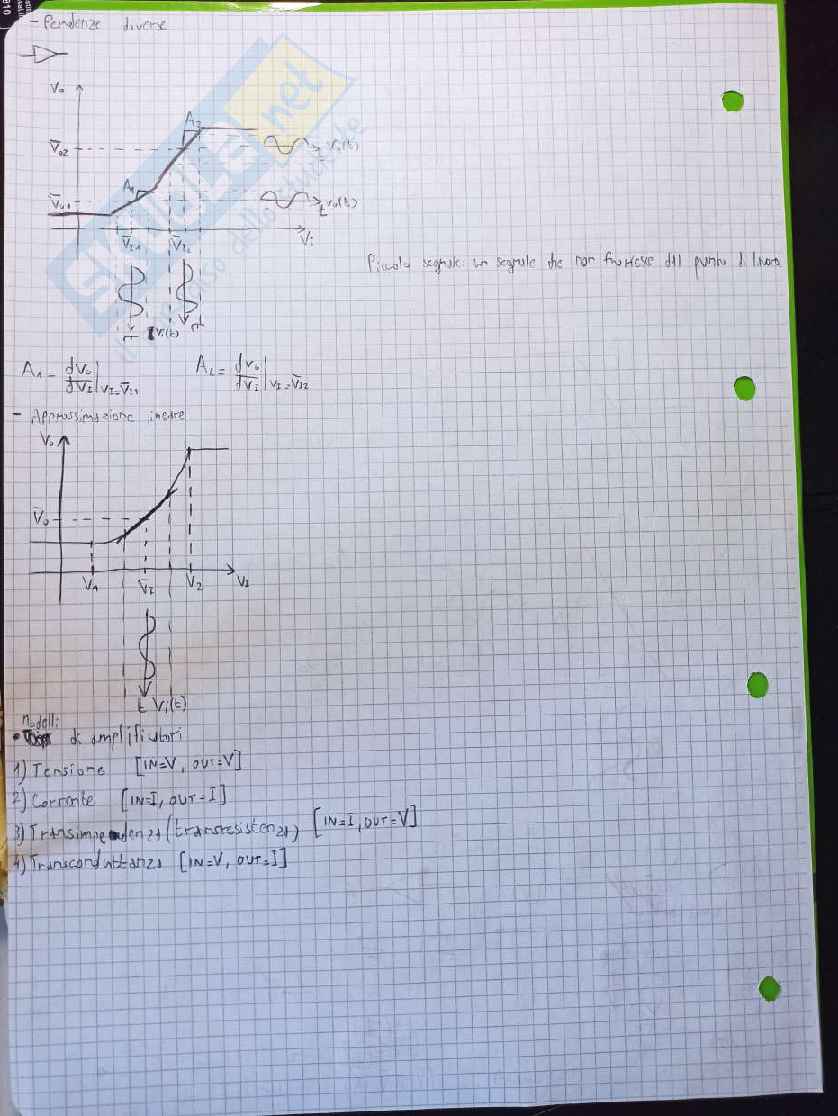 - Pendenze diverse
Vo
A2
V̅o2
vi(t)
A1
V̅o1
t vo(t)
Vi
V̅I1 V̅I2
Piccolo segnale: un segnale che non fuoriesce dal punto di lavoro
t vi(t) t
A1 = dvo/dvI |VI=V̅I1 A2 = dvo/dvi |VI=V̅I2
- Approssimazione lineare
Vo
V̅o
V1 V̅I V2 VI
t Vi(t)
Modelli
• di amplificatori
1) Tensione [IN=V, OUT=V]
2) Corrente [IN=I, OUT=I]
3) Transimpedenza (transresistenza) [IN=I, OUT=V]
4) Transconduttanza [IN=V, OUT=I]
SKUOLA.net
il paradiso dello studente